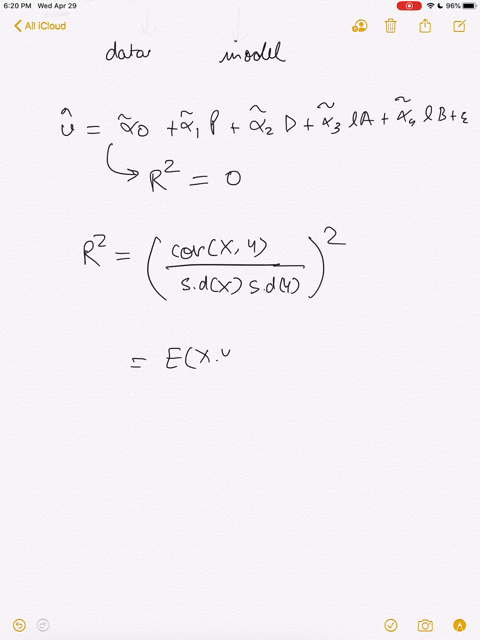 6:20 PM Wed Apr 29 96%
All iCloud
data model
û = α̃0 + α̃₁ P + α̃₂ D + α̃₃ lA + α̃₄ lB + ε
R² = 0
R² = ( cov(X, Y) / s.d(X) s.d(Y) )²
= E(X.